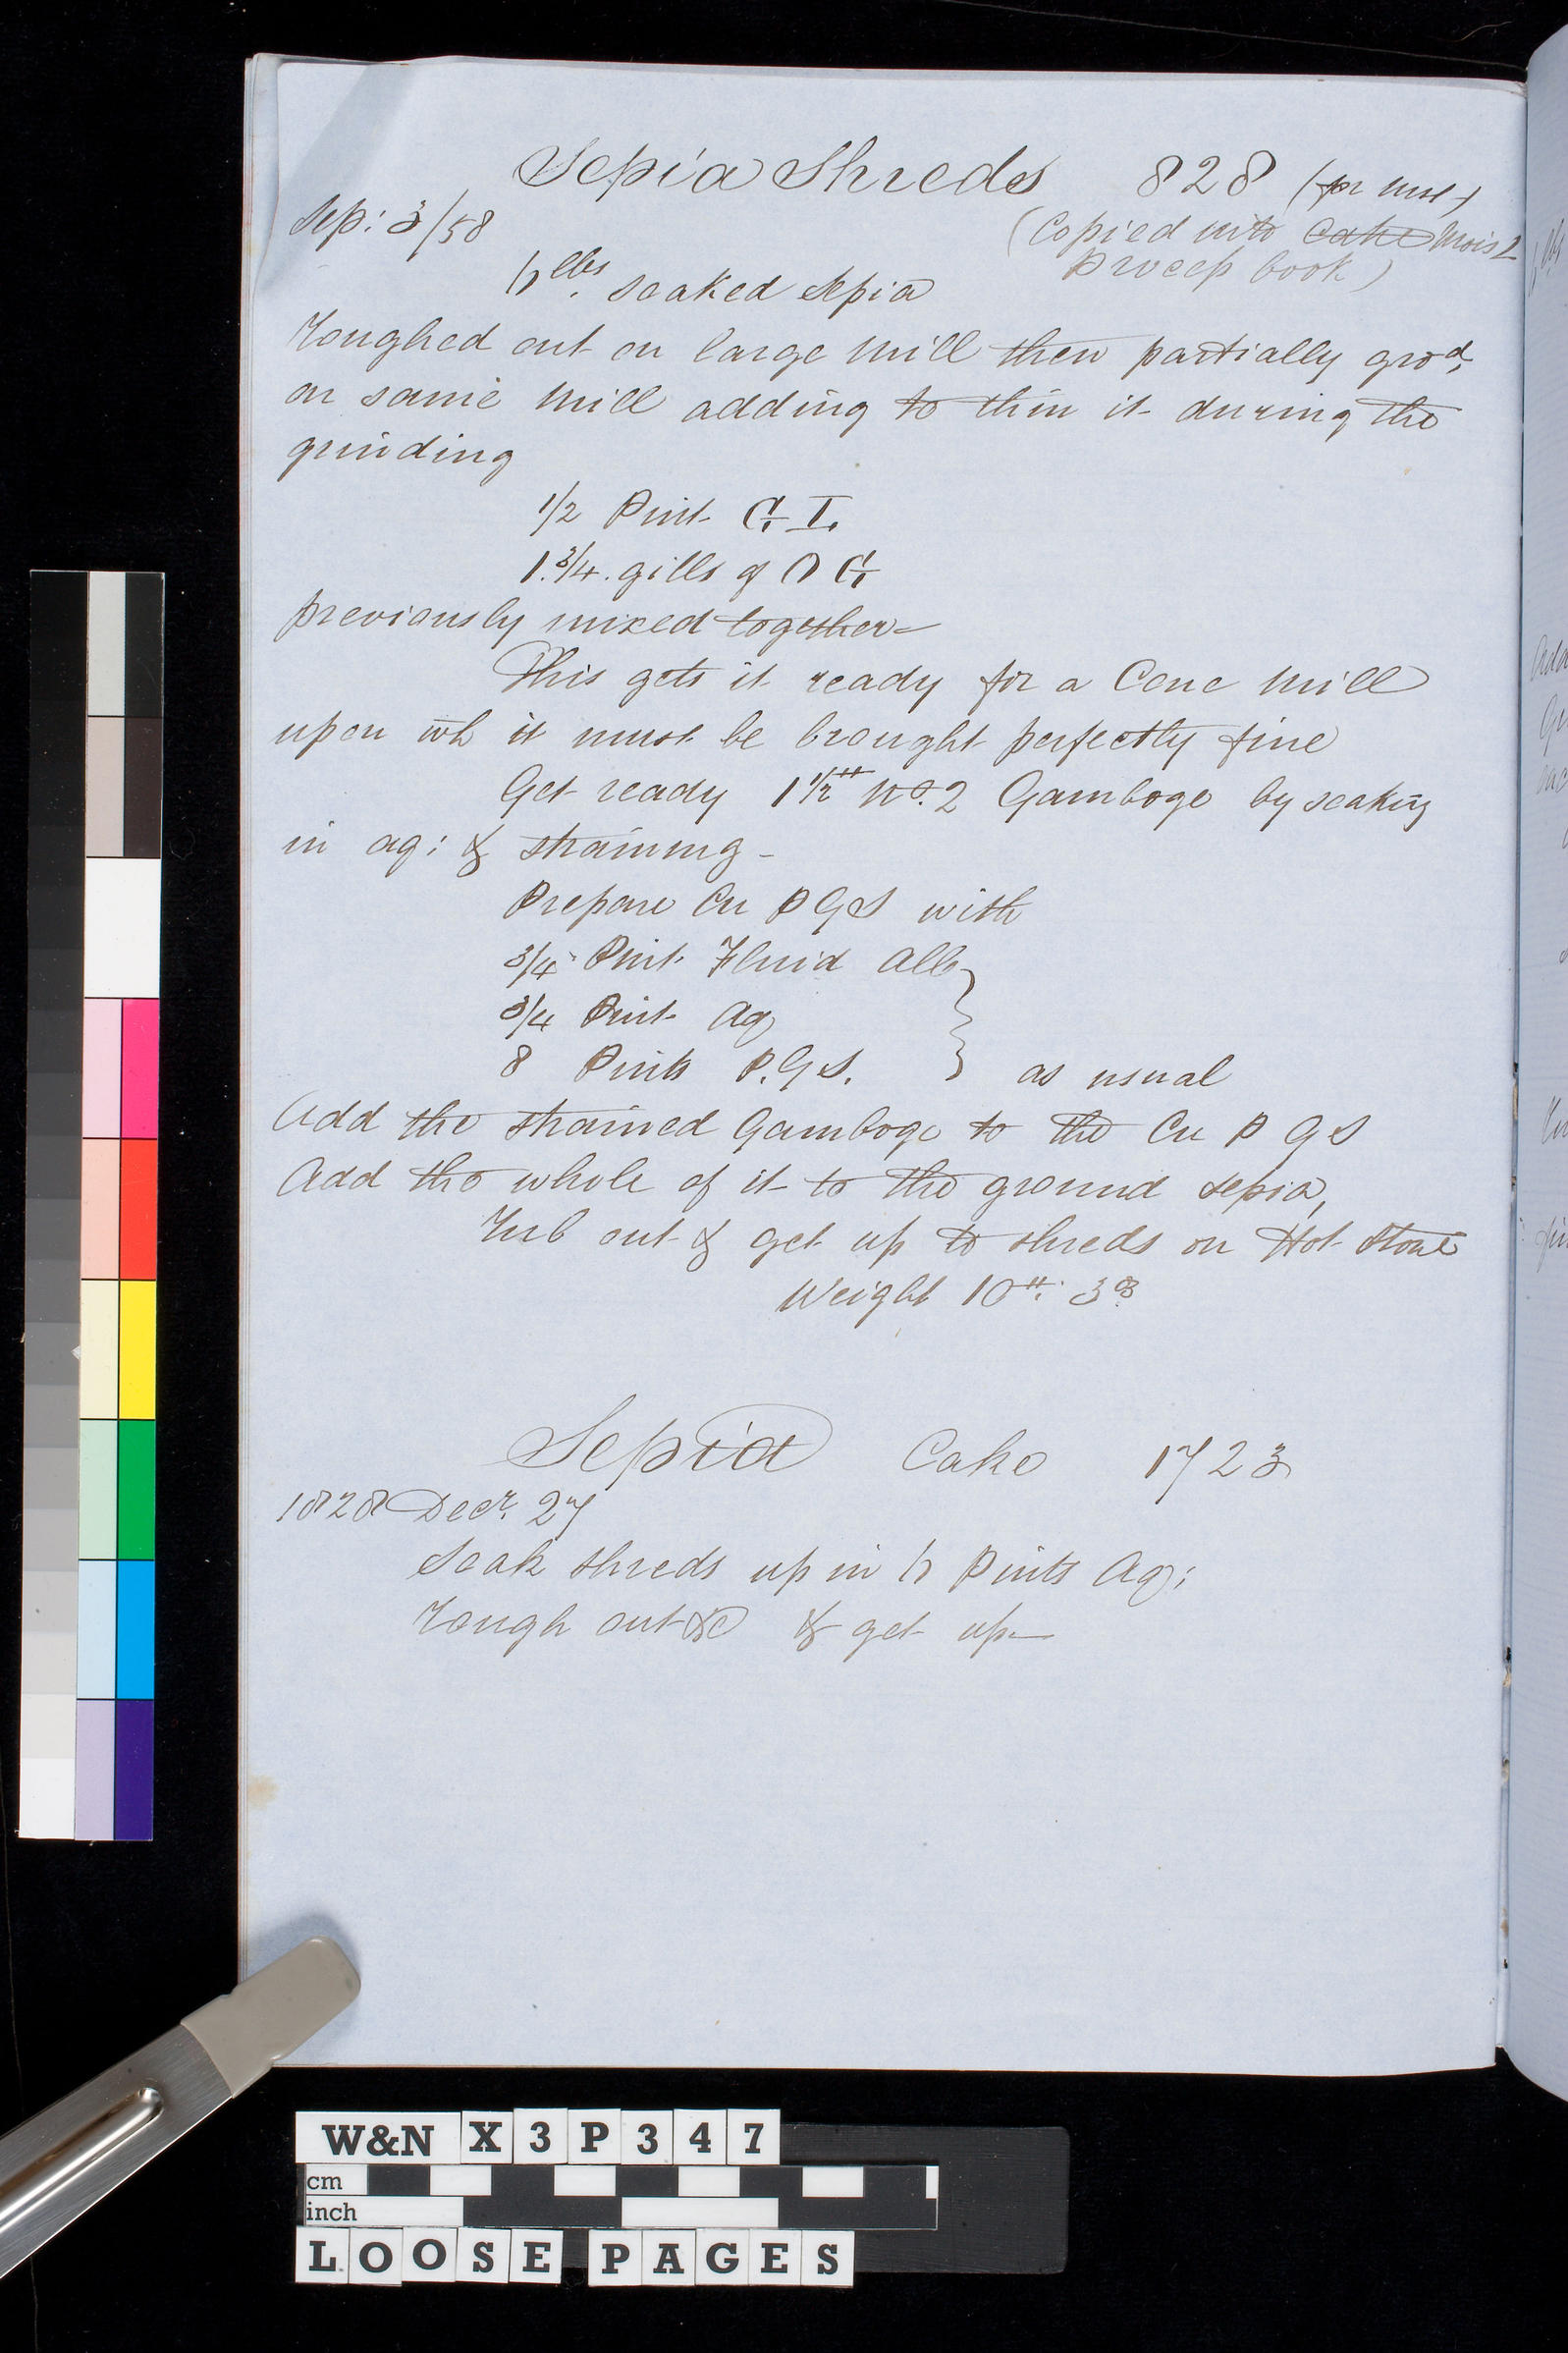 Sepia Shreds 828 (for mst)
Sep: 3/58
(Copied into Cake Moist
Proces book)
6 lbs. soaked Sepia
Roughed out on large Mill then partially gro.d
on same Mill adding to thin it during the
grinding
1/2 Pint G I.
1.3/4. gills of O G
previously mixed together—
This gets it ready for a Cone Mill
upon wh it must be brought perfectly fine
Get ready 1 1/2 # No. 2 Gamboge by soaking
in aq: & straining -
Prepare Cu P G S with
3/4 Pint Fluid Alb
3/4 Pint Aq
8 Pints P. G S. } as usual
Add the strained Gamboge to the Cu P G S
Add the whole of it to the ground Sepia,
Rub out & get up to shreds on Hot Stone
Weight 10 #. 3 oz
Sepia Cake 1723
1828 Decr. 27
Soak shreds up in 6 Pints Aq:
Rough out &c & get up—
W&N X3P347
cm
inch
LOOSE PAGES